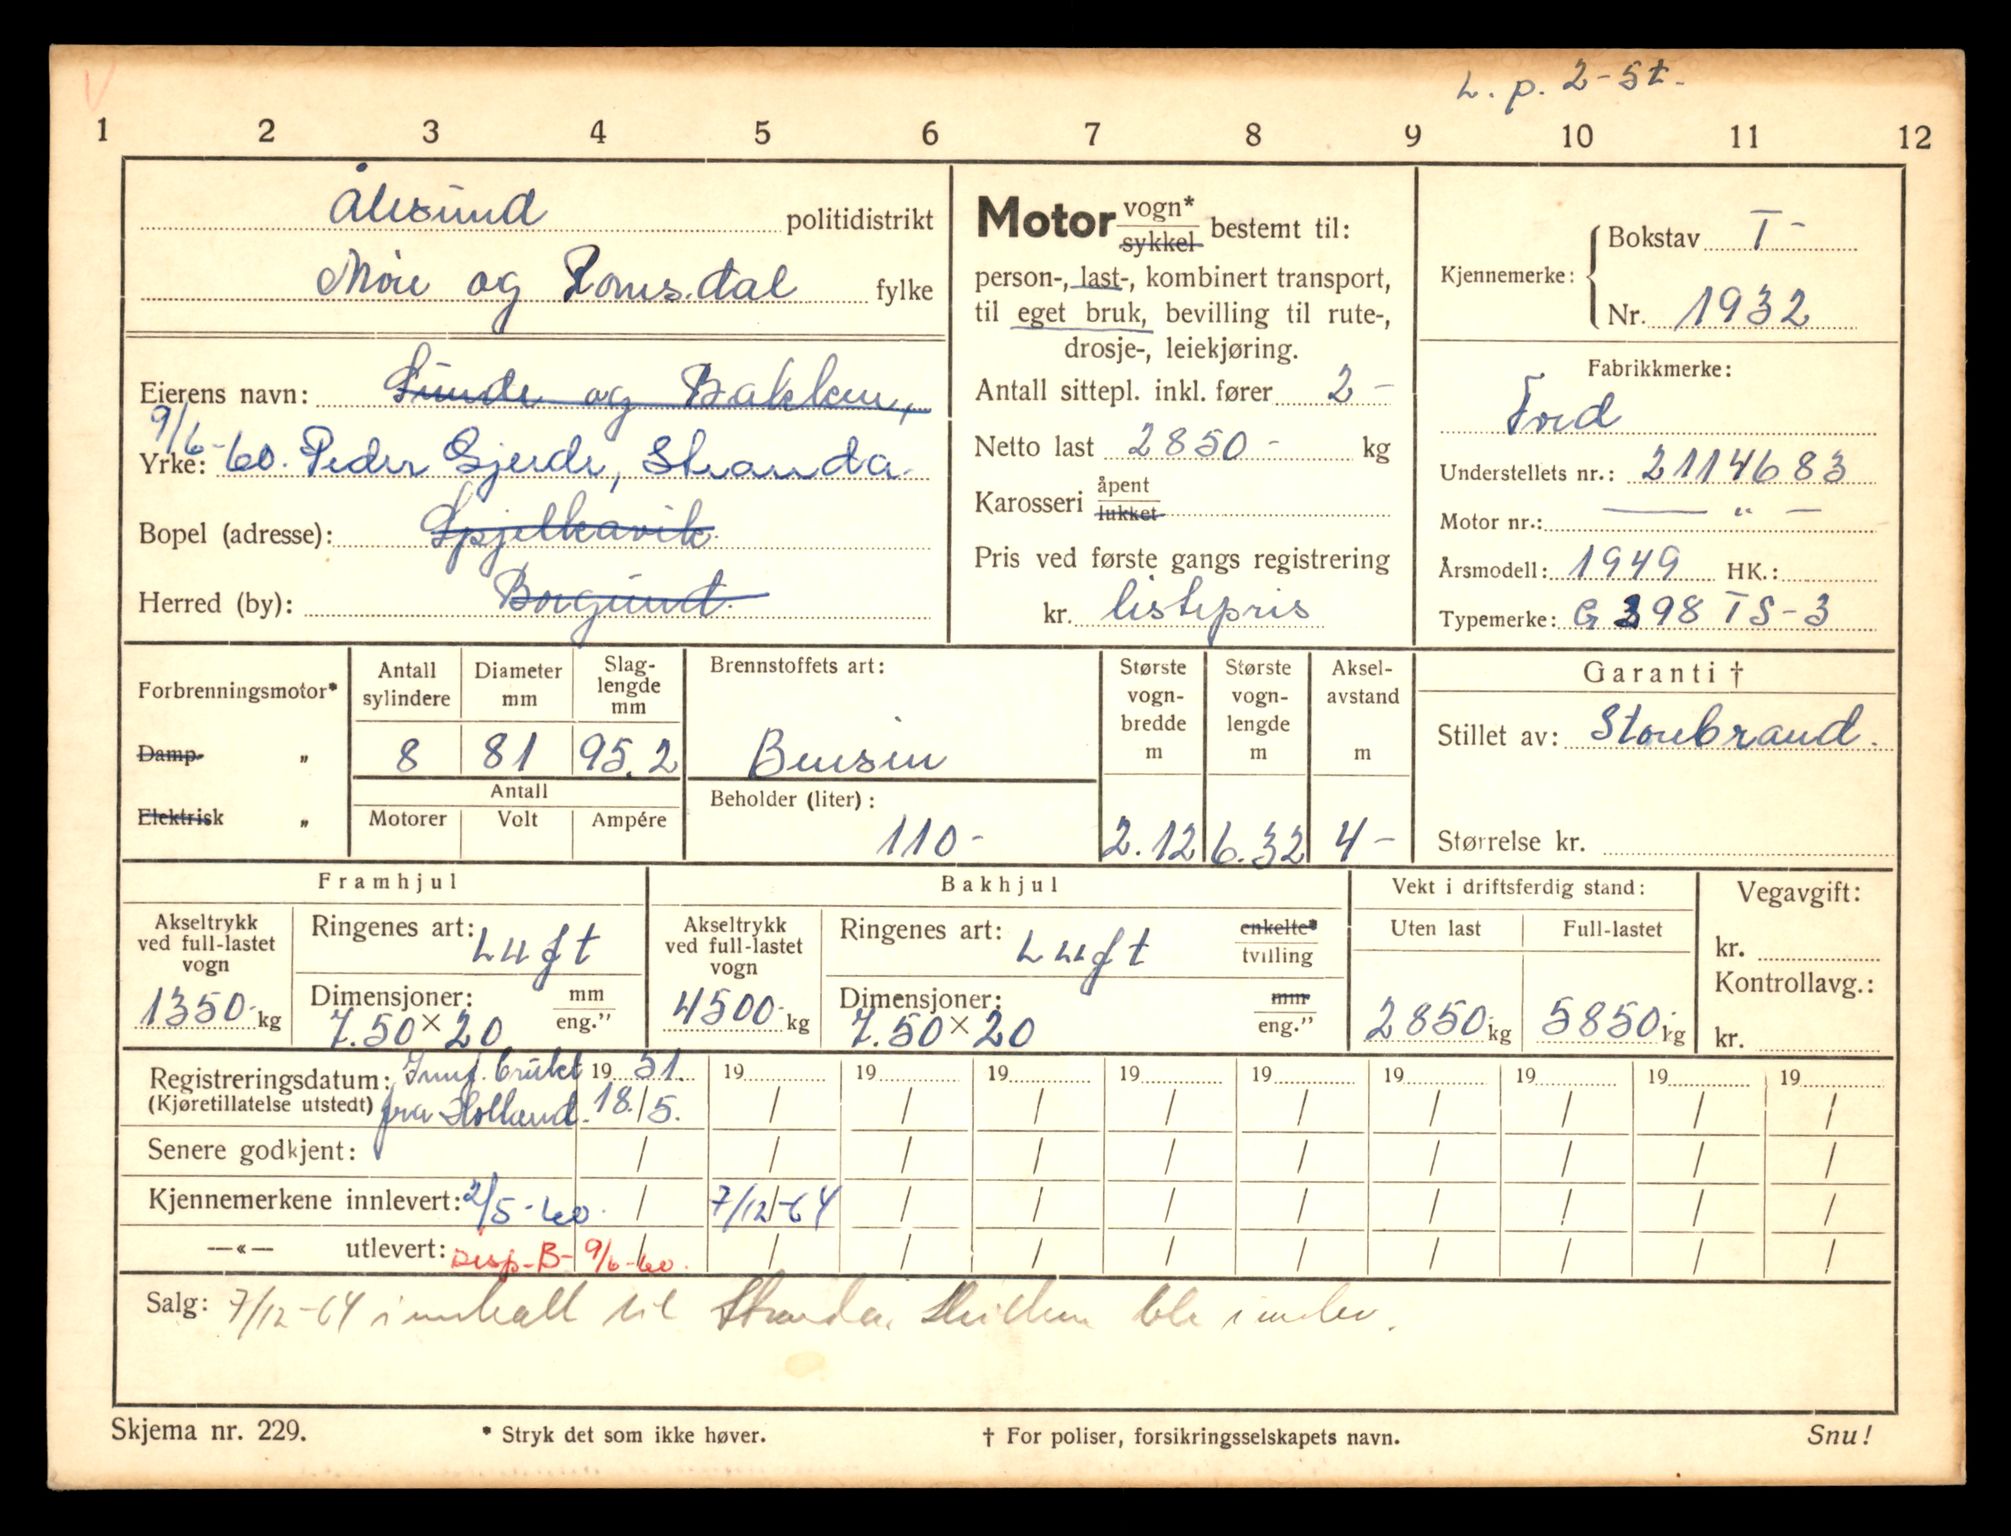 L. p. 2-5t.
1 2 3 4 5 6 7 8 9 10 11 12
Ålesund politidistrikt
Møre og Romsdal fylke
Eierens navn: Sunde og Bakken,
9/6-60. Peder Gjerde, Stranda.
Yrke:
Bopel (adresse): Spjelkavik.
Herred (by): Borgund.
Motor vogn* sykkel bestemt til:
person-, last-, kombinert transport,
til eget bruk, bevilling til rute-,
drosje-, leiekjøring.
Antall sittepl. inkl. fører 2-
Netto last 2850- kg
Karosseri åpent lukket
Pris ved første gangs registrering
kr. listepris
Kjennemerke: Bokstav T-
Nr. 1932
Fabrikkmerke:
Ford
Understellets nr.: 2114683
Motor nr.: — " —
Årsmodell: 1949 HK.:
Typemerke: G 398 TS-3
Forbrenningsmotor*
Damp- „
Elektrisk „
Antall sylindere
8
Diameter mm
81
Slag-
lengde
mm
95.2
Antall
Motorer Volt Ampére
Brennstoffets art:
Bensin
Beholder (liter):
110-
Største
vogn-
bredde
m
2.12
Største
vogn-
lengde
m
6.32
Aksel-
avstand
m
4-
Garanti †
Stillet av: Storebrand.
Størrelse kr.
Framhjul
Akseltrykk
ved full-lastet
vogn
1350- kg
Ringenes art: Luft
Dimensjoner: mm eng."
7.50×20
Bakhjul
Akseltrykk
ved full-lastet
vogn
4500- kg
Ringenes art: Luft enkelte* tvilling
Dimensjoner: mm eng."
7.50×20
Vekt i driftsferdig stand:
Uten last Full-lastet
2850 kg 5850- kg
Vegavgift:
kr.
Kontrollavg.:
kr.
Registreringsdatum: Innf. brukt 19 51. 19 19 19 19 19 19 19 19 19
(Kjøretillatelse utstedt) fra Holland. 18./5. / / / / / / / / /
Senere godkjent: / / / / / / / / / /
Kjennemerkene innlevert: 2/5-60. / 7/12-64 / / / / / / / /
—«— utlevert: Disp-B- 9/6-60. / / / / / / / / /
Salg: 7/12-64 innkalt til Stranda. Skilten ble innlev.
Skjema nr. 229.
* Stryk det som ikke høver.
† For poliser, forsikringsselskapets navn.
Snu!